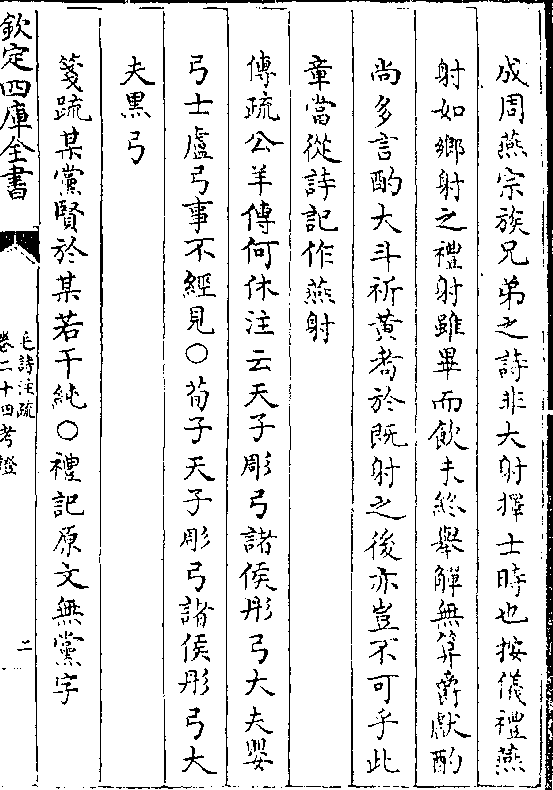 成周燕宗族兄弟之詩非大射擇士時也按儀禮燕
射如鄉射之禮射雖畢而飲未終舉觶無算爵獻酌
尚多言酌大斗祈黃耇於既射之後亦豈不可乎此
章當從詩記作燕射
傳疏公羊傳何休注云天子彫弓諸侯彤弓大夫嬰
弓士盧弓事不經見○荀子天子彫弓諸侯彤弓大
夫黑弓
箋疏某黨賢於某若干純○禮記原文無黨字
欽定四庫全書
毛詩注疏
卷二十四考證
二